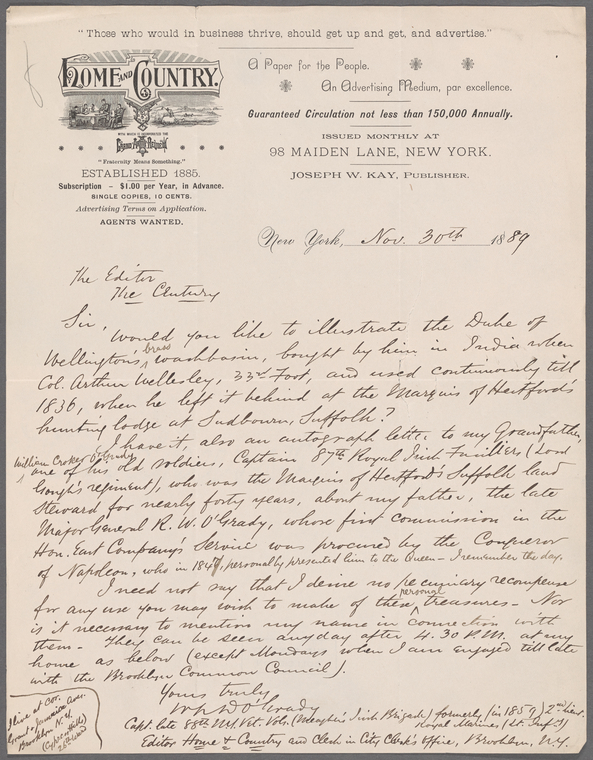 "Those who would in business thrive, should get up and get, and advertise."
HOME AND COUNTRY.
WITH WHICH IS INCORPORATED THE
Grand Army Review
"Fraternity Means Something."
ESTABLISHED 1885.
Subscription - $1.00 per Year, in Advance.
SINGLE COPIES, 10 CENTS.
Advertising Terms on Application.
AGENTS WANTED.
A Paper for the People.
An Advertising Medium, par excellence.
Guaranteed Circulation not less than 150,000 Annually.
ISSUED MONTHLY AT
98 MAIDEN LANE, NEW YORK.
JOSEPH W. KAY, PUBLISHER.
New York, Nov. 30th 1889
The Editor
The Century
Sir,
Would you like to illustrate the Duke of
Wellington's brass washbasin, bought by him in India when
Col. Arthur Wellesley, 33rd Foot, and used continuously till
1836, when he left it behind at the Marquis of Hertford's
hunting lodge at Sudbourn, Suffolk?
I have it, also an autograph letter to my Grandfather,
William Croker O'Grady
one of his old soldiers, Captain 87th Royal Irish Fusiliers (Lord
Gough's regiment), who was the Marquis of Hertford's Suffolk land
Steward for nearly forty years, about my father, the late
Major General R. W. O'Grady, whose first commission in the
Hon. East Company's Service was procured by the Conqueror
of Napoleon, who in personally presented him to the Queen - I remember the day.
I need not say that I desire no pecuniary recompense
for any use you may wish to make of these personal treasures - Nor
is it necessary to mention my name in connection with
them - They can be seen any day after 4.30 P.M. at my
home as below (except Mondays when I am engaged till late
with the Brooklyn Common Council).
Yours truly
O'Grady
Capt. late 88th N.Y. Vet. Vols. (Meagher's Irish Brigade) formerly (in 1859) 2nd Lieut.
Royal Marines (Lt. Inf.y)
Editor Home & Country and Clerk in City Clerk's Office, Brooklyn, N.Y.
I live at cor.
Grant & Jamaica Aves.
Brooklyn N.Y.
(Cypress Hills)
26th Ward